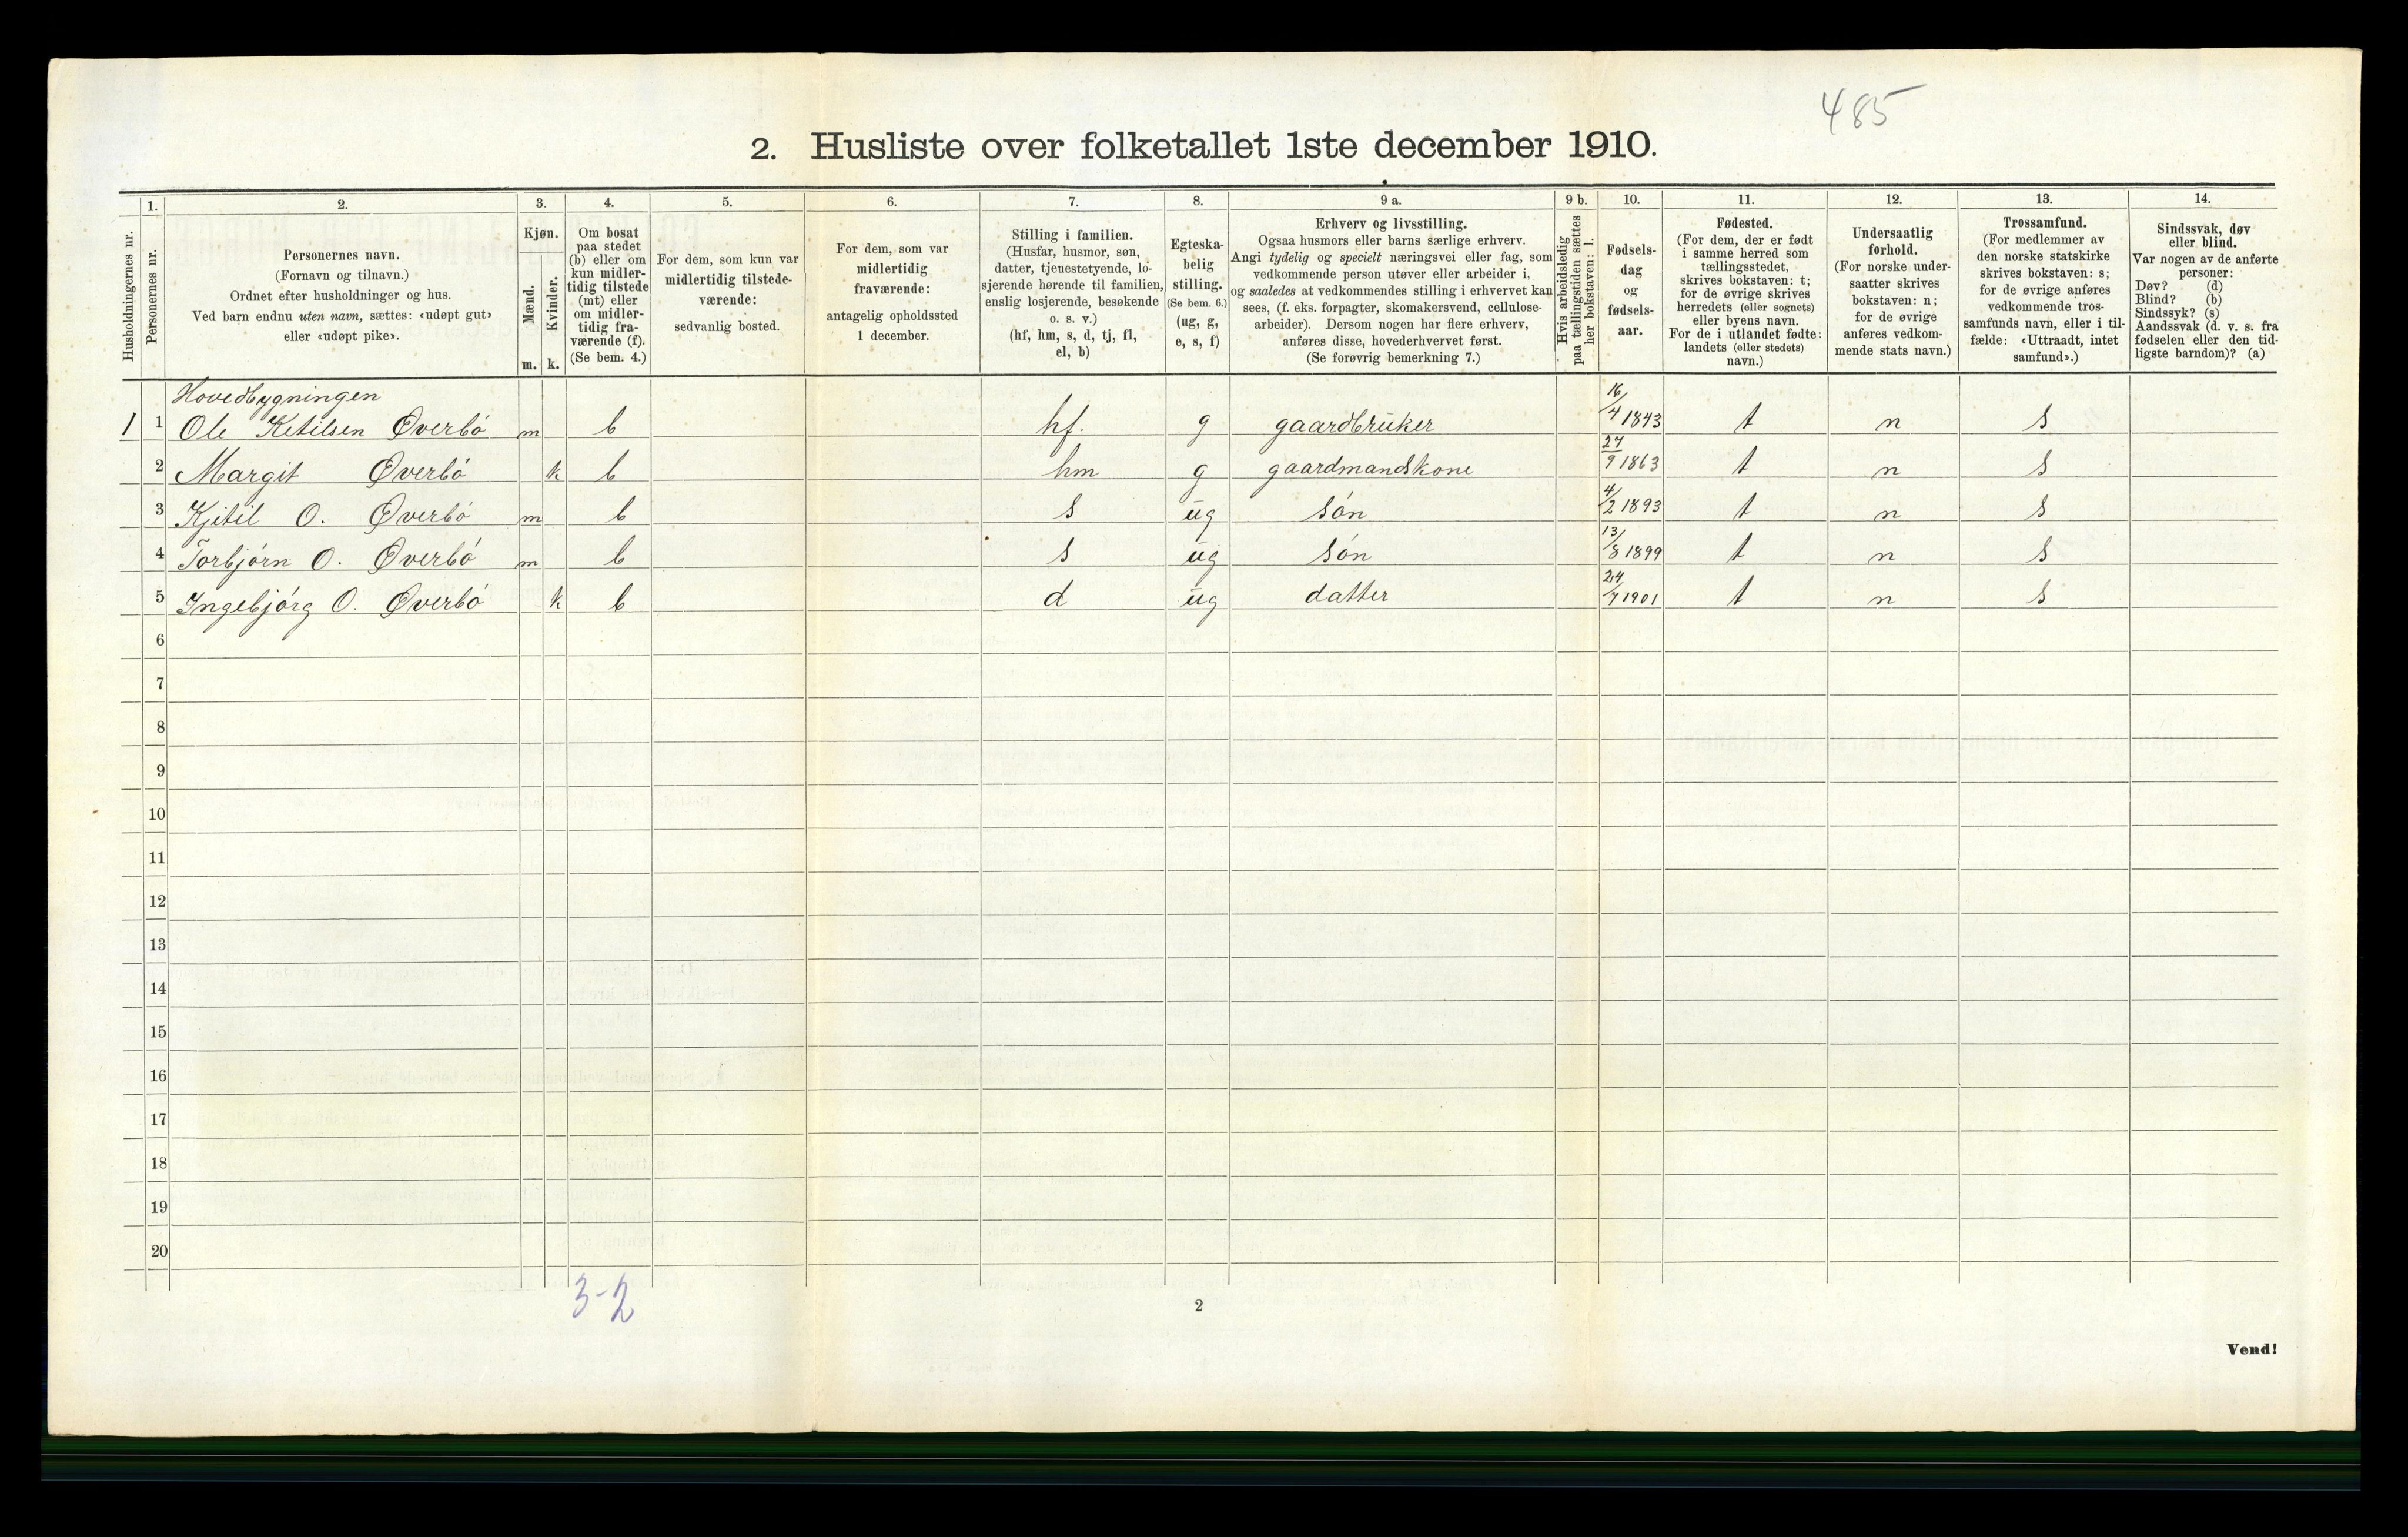 485
2. Husliste over folketallet 1ste december 1910.
Husholdningernes nr.
1.
Personernes nr.
2.
Personernes navn.
(Fornavn og tilnavn.)
Ordnet efter husholdninger og hus.
Ved barn endnu uten navn, sættes: «udøpt gut»
eller «udøpt pike».
3.
Kjøn.
Mænd.
Kvinder.
m. k.
4.
Om bosat
paa stedet
(b) eller om
kun midler-
tidig tilstede
(mt) eller
om midler-
tidig fra-
værende (f).
(Se bem. 4.)
5.
For dem, som kun var
midlertidig tilstede-
værende:
sedvanlig bosted.
6.
For dem, som var
midlertidig
fraværende:
antagelig opholdssted
1 december.
7.
Stilling i familien.
(Husfar, husmor, søn,
datter, tjenestetyende, lo-
sjerende hørende til familien,
enslig losjerende, besøkende
o. s. v.)
(hf, hm, s, d, tj, fl,
el, b)
8.
Egteska-
belig
stilling.
(Se bem. 6.)
(ug, g,
e, s, f)
9 a.
Erhverv og livsstilling.
Ogsaa husmors eller barns særlige erhverv.
Angi tydelig og specielt næringsvei eller fag, som
vedkommende person utøver eller arbeider i,
og saaledes at vedkommendes stilling i erhvervet kan
sees, (f. eks. forpagter, skomakersvend, cellulose-
arbeider). Dersom nogen har flere erhverv,
anføres disse, hovederhvervet først.
(Se forøvrig bemerkning 7.)
9 b.
Hvis arbeidsledig
paa tællingstiden sættes
her bokstaven: l.
10.
Fødsels-
dag
og
fødsels-
aar.
11.
Fødested.
(For dem, der er født
i samme herred som
tællingsstedet,
skrives bokstaven: t;
for de øvrige skrives
herredets (eller sognets)
eller byens navn.
For de i utlandet fødte:
landets (eller stedets)
navn.)
12.
Undersaatlig
forhold.
(For norske under-
saatter skrives
bokstaven: n;
for de øvrige
anføres vedkom-
mende stats navn.)
13.
Trossamfund.
(For medlemmer av
den norske statskirke
skrives bokstaven: s;
for de øvrige anføres
vedkommende tros-
samfunds navn, eller i til-
fælde: «Uttraadt, intet
samfund».)
14.
Sindssvak, døv
eller blind.
Var nogen av de anførte
personer:
Døv? (d)
Blind? (b)
Sindssyk? (s)
Aandssvak (d. v. s. fra
fødselen eller den tid-
ligste barndom)? (a)
Hovedbygningen
1 1 Ole Ketilsen Øverbó m b hf. g gaardbruker 16/4 1843 t n s
2 Margit Øverbó k b hm g gaardmandskone 27/9 1863 t n s
3 Kjetil O. Øverbó m b s ug són 4/2 1893 t n s
4 Torbjórn O. Øverbó m b s ug són 13/8 1899 t n s
5 Ingebjórg O. Øverbó k b d ug datter 24/7 1901 t n s
6
7
8
9
10
11
12
13
14
15
16
17
18
19
20
3-2
2
Vend!